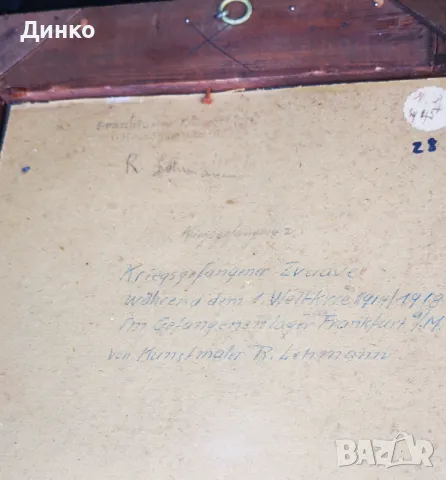 Динко
28
R. Lehmann
Kriegsgefangener
Kriegsgefangener Zuave
während dem 1. Weltkrieg 1914/1918
im Gefangenenlager Frankfurt a/M.
von Kunstmaler R. Lehmann
BAZAR